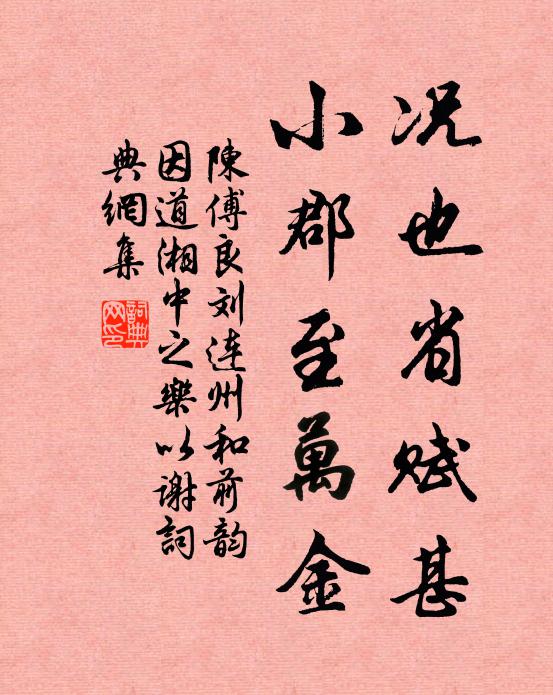 况也省赋甚
小郡至萬金
陳傅良刘连州和前韵
因道湘中之樂以谢詞
典網集
詞典
网印